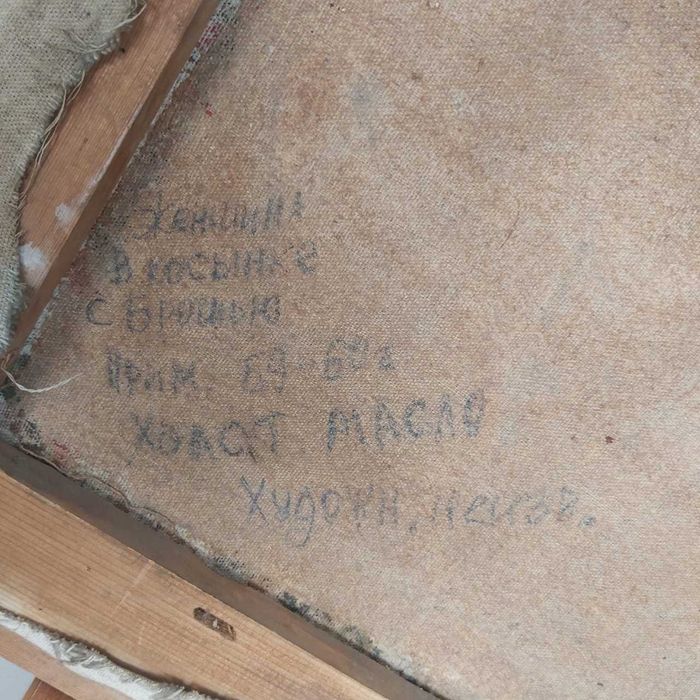 Женщина
в косынке
с брошью
прим. 59-60г
холст масло
Художн. неизв.